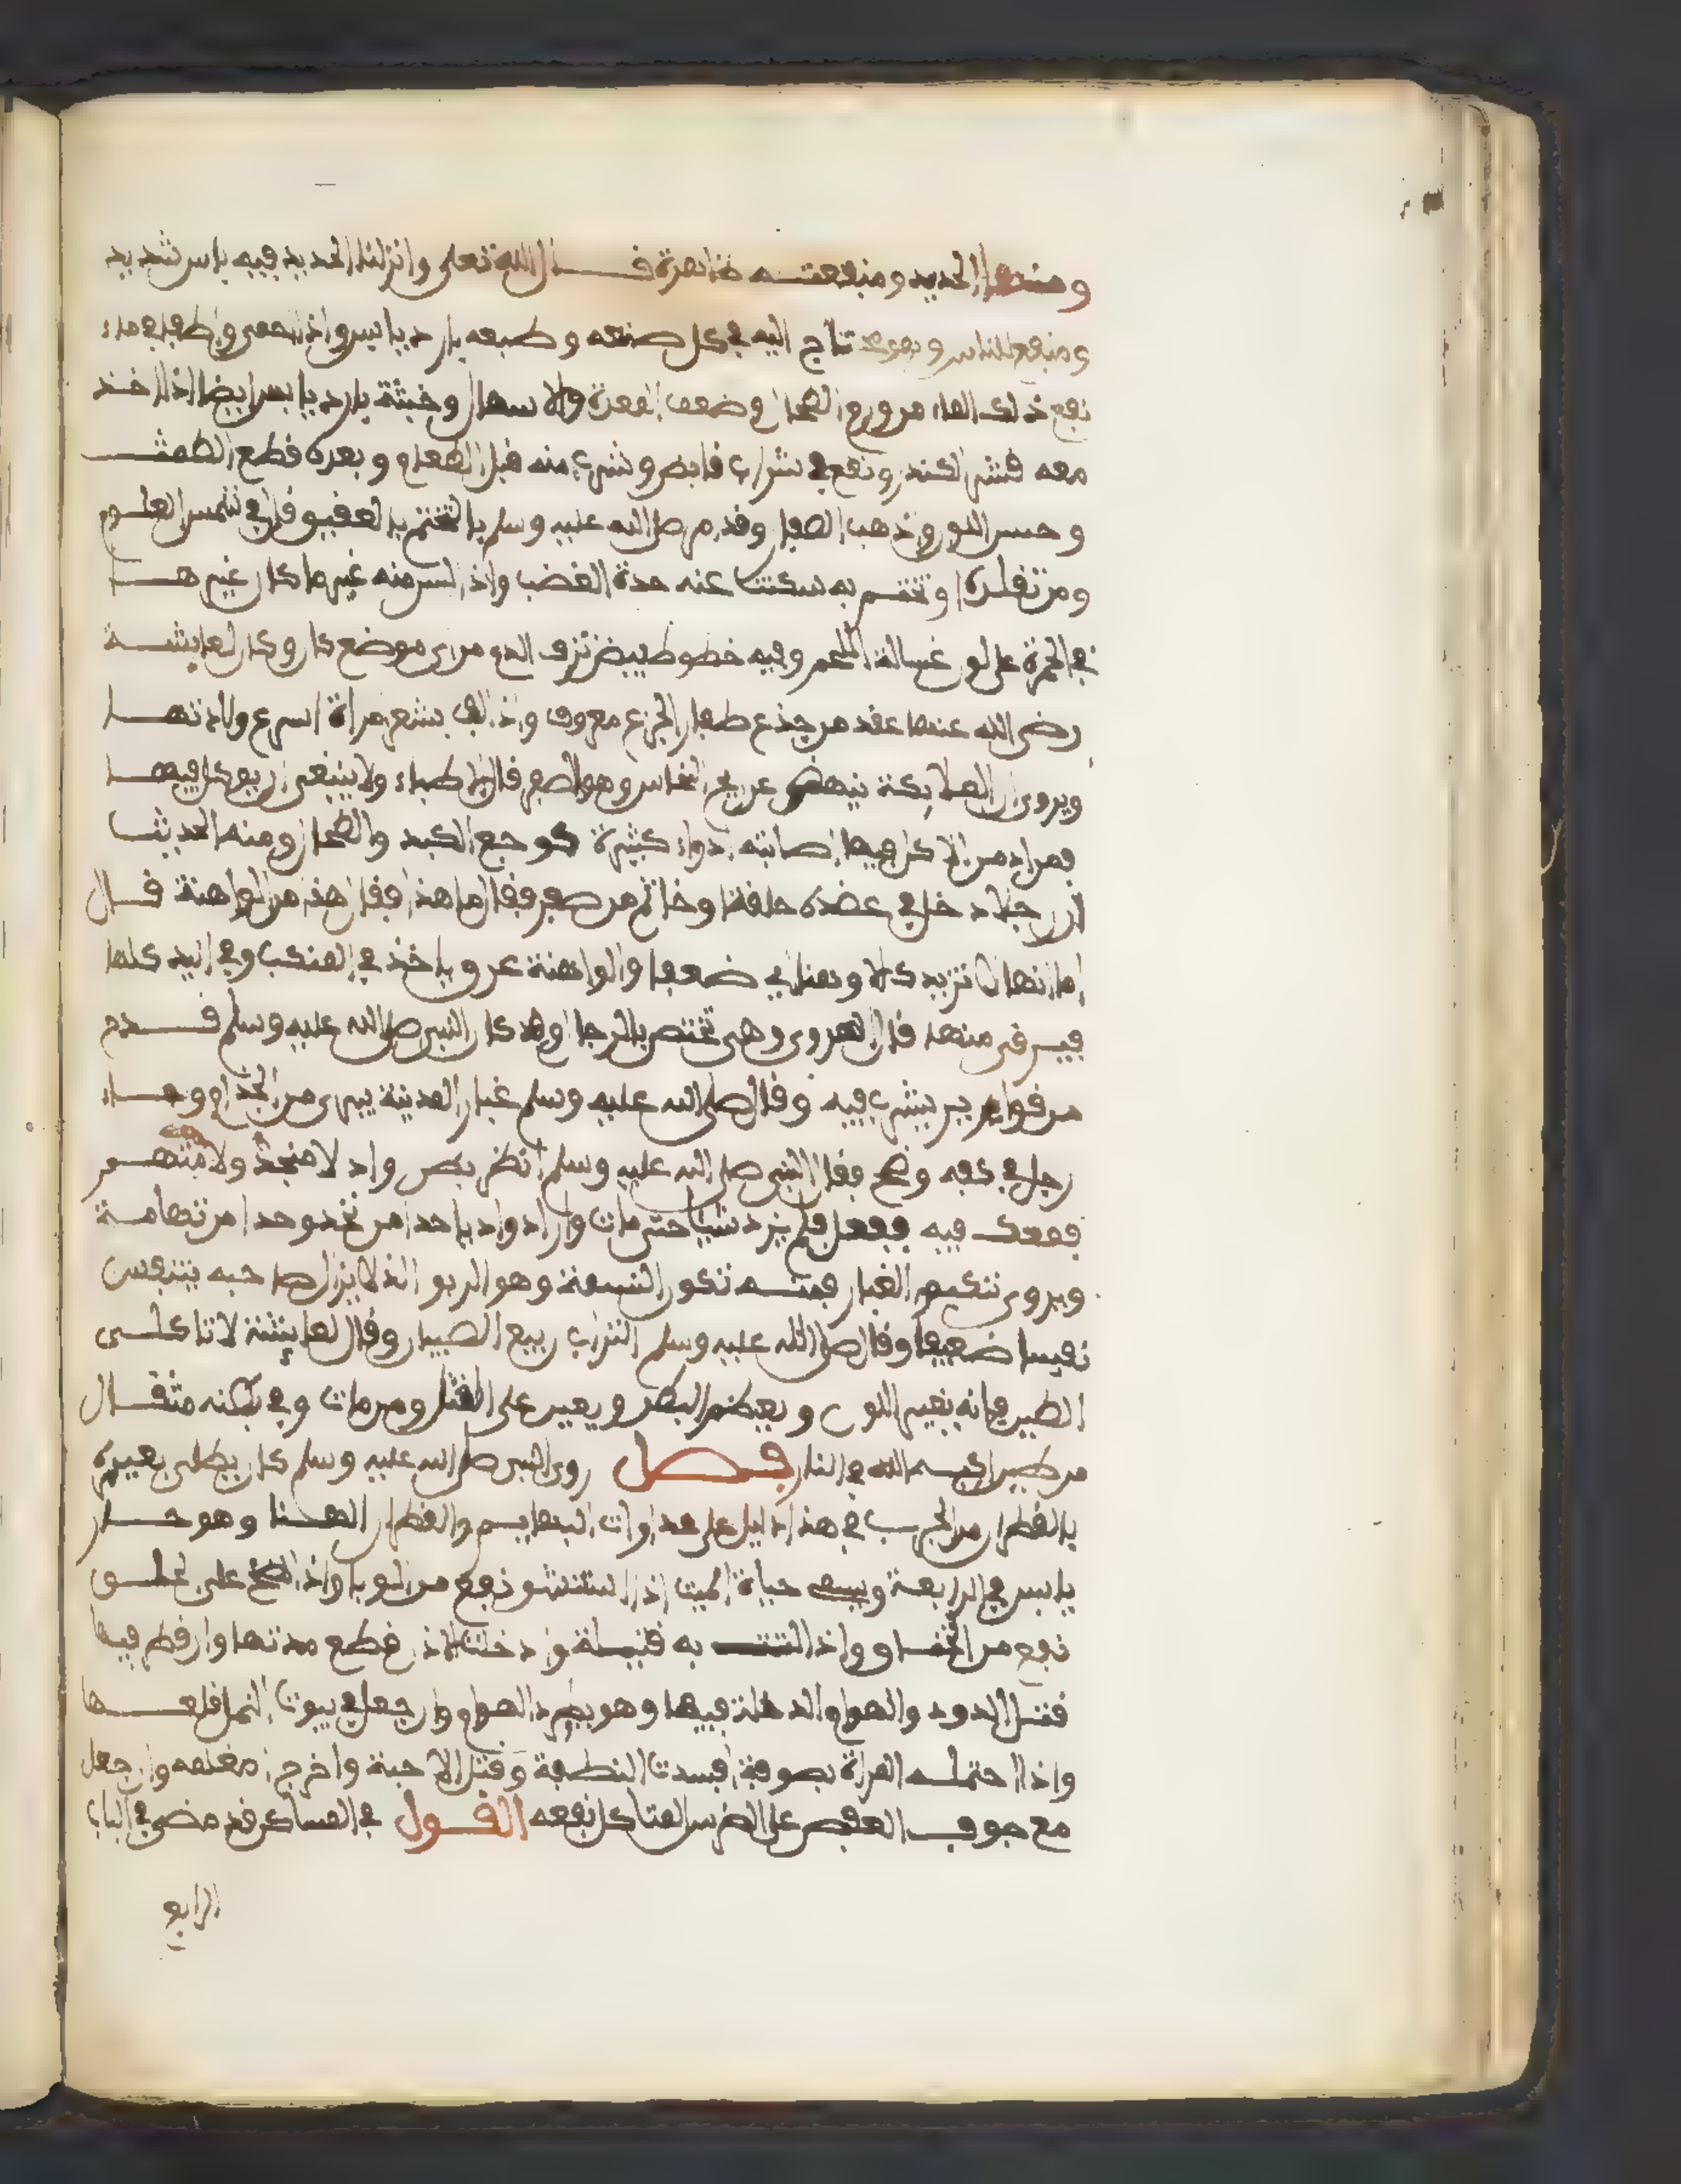 ومنها الحديد ومنفعته ظاهرة قال الله تعلى وانزلنا الحديد فيه باس شديد
ومنفع للناس وهو يحتاج اليه في كل صنعه وطبعه بارد يابس واذا احمى واطفى في ماء
نفع ذلك الماء من ورم الطحال وضعف المعدة والاسهال وخبثه بارد يابس ايضا اذا اخذ
معه قشر الكندر ونفع في شراب قابض وشرب منه قبل الطعام وبعده قطع الطمث
وحسن اللون واذهب الصفار وقد امر صلى الله عليه وسلم بالتختم بالعقيق قال في شمس العلوم
ومن تقلده او تختم به سكنت عنه حدة الغضب واذا لبس منه غير ما كان غيرها
في الحمرة على لون غسالة اللحم وفيه خطوط بيض نزف الدم من اي موضع كان وكان لعايشة
رضي الله عنها عقد من جذع ظفار الجزع معروف واذا لف بشعر امراة اسرع ولادتها
ويروى ان الملايكة نهى عن ريح النحاس وهو الصفر قال الاطباء ولا ينبغي ان يوكل فيها
فمن ادمن الاكل فيها اصابته ادواء كثيرة كوجع الكبد والطحال ومنه الحديث
ان رجلا دخل في عضده حلقة او خاتم من صفر فقال ما هذا فقال هذا من الواهنة قال
اما انها لا تزيدك الا وهنا اي ضعفا والواهنة عرق ياخذ في المنكب وفي اليد كلها
فيرقى منها قال الهروي وهي تختص بالرجال وقد كان النبي صلى الله عليه وسلم قدح
من قوارير يشرب فيه وقال صلى الله عليه وسلم غبار المدينة يبري من الجذام وجاء
رجل في كفه وضح فقال النبي صلى الله عليه وسلم انظر بطن واد لا منجد ولا متهم
فمعك فيه ففعل فلم يزد شيا حتى مات واراد واد ياحدا من نجد وحدا من تهامة
ويروى تنكبوا الغبار فمنه تكون النسمة وهو الربو الذي لا يزال صاحبه يتنفس
نفيسا ضعيفا وقال صلى الله عليه وسلم التراب ربيع الصبيان وقال لعايشة لا تاكلي
الطين فانه يغير اللون ويعظم البطن ويعين على القتل ومن مات وفي بطنه مثقال
من طين اكبه الله في النار فصل روي النبي صلى الله عليه وسلم كان يطلى بعيره
بالقطران من الجرب ففي هذا دليل على مداوات البهايم والقطران الهنا وهو حار
يابس في الرابعة ويسمى حياة الميت اذا استنشق نفع من الوبا واذا لطخ على الحلق
نفع من الخناق واذا لتت به فتيلة ودخلت الاذن قطع مدتها وان قطر فيها
قتل الدود والهوام الداخلة فيها وهو يطرد الهوام وان جعل في بيوت النمل قلعها
واذا احتملته المراة بصوفة افسدت النطفة وقتل الاجنة واخرج وان جعل
مع جوف العفص على الضرس المتاكل نفعه القول في المساكن قد مضى في الباب
الرابع